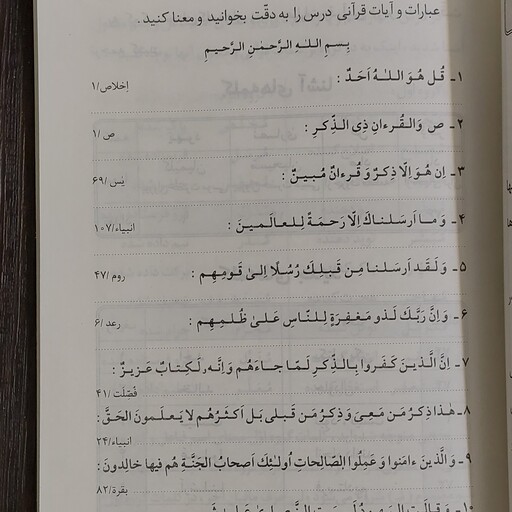 عبارات و آیات قرآنی درس را به دقّت بخوانید و معنا کنید.
بِسمِ اللهِ الرَّحمٰنِ الرَّحیمِ
۱ـ قُل هُوَ اللهُ اَحَدٌ :
اِخلاص/۱
۲ـ ص وَالقُرءانِ ذِی الذِّکرِ :
ص /۱
۳ـ اِن هُوَ اِلّا ذِکرٌ وَ قُرءانٌ مُبینٌ :
یٰس/۶۹
۴ـ وَ ما اَرسَلناكَ اِلّا رَحمَةً لِلعالَمینَ :
انبیاء/۱۰۷
۵ـ وَ لَقَد اَرسَلنا مِن قَبلِكَ رُسُلًا اِلیٰ قَومِهِم :
روم /۴۷
۶ـ وَ اِنَّ رَبَّكَ لَذو مَغفِرَةٍ لِلنّاسِ عَلیٰ ظُلمِهِم :
رعد /۶
۷ـ اِنَّ الَّذینَ کَفَروا بِالذِّکرِ لَمّا جاءَهُم وَ اِنَّهُ لَکِتابٌ عَزیزٌ :
فُصِّلَت /۴۱
۸ـ هٰذا ذِکرُ مَن مَعِیَ وَ ذِکرُ مَن قَبلی بَل اَکثَرُهُم لا یَعلَمونَ الحَقَّ :
انبیاء/۲۴
۹ـ وَ الَّذینَ ءامَنوا وَ عَمِلُوا الصّالِحاتِ اُولٰئِكَ اَصحابُ الجَنَّةِ هُم فیها خالِدونَ :
بقرة/۸۲